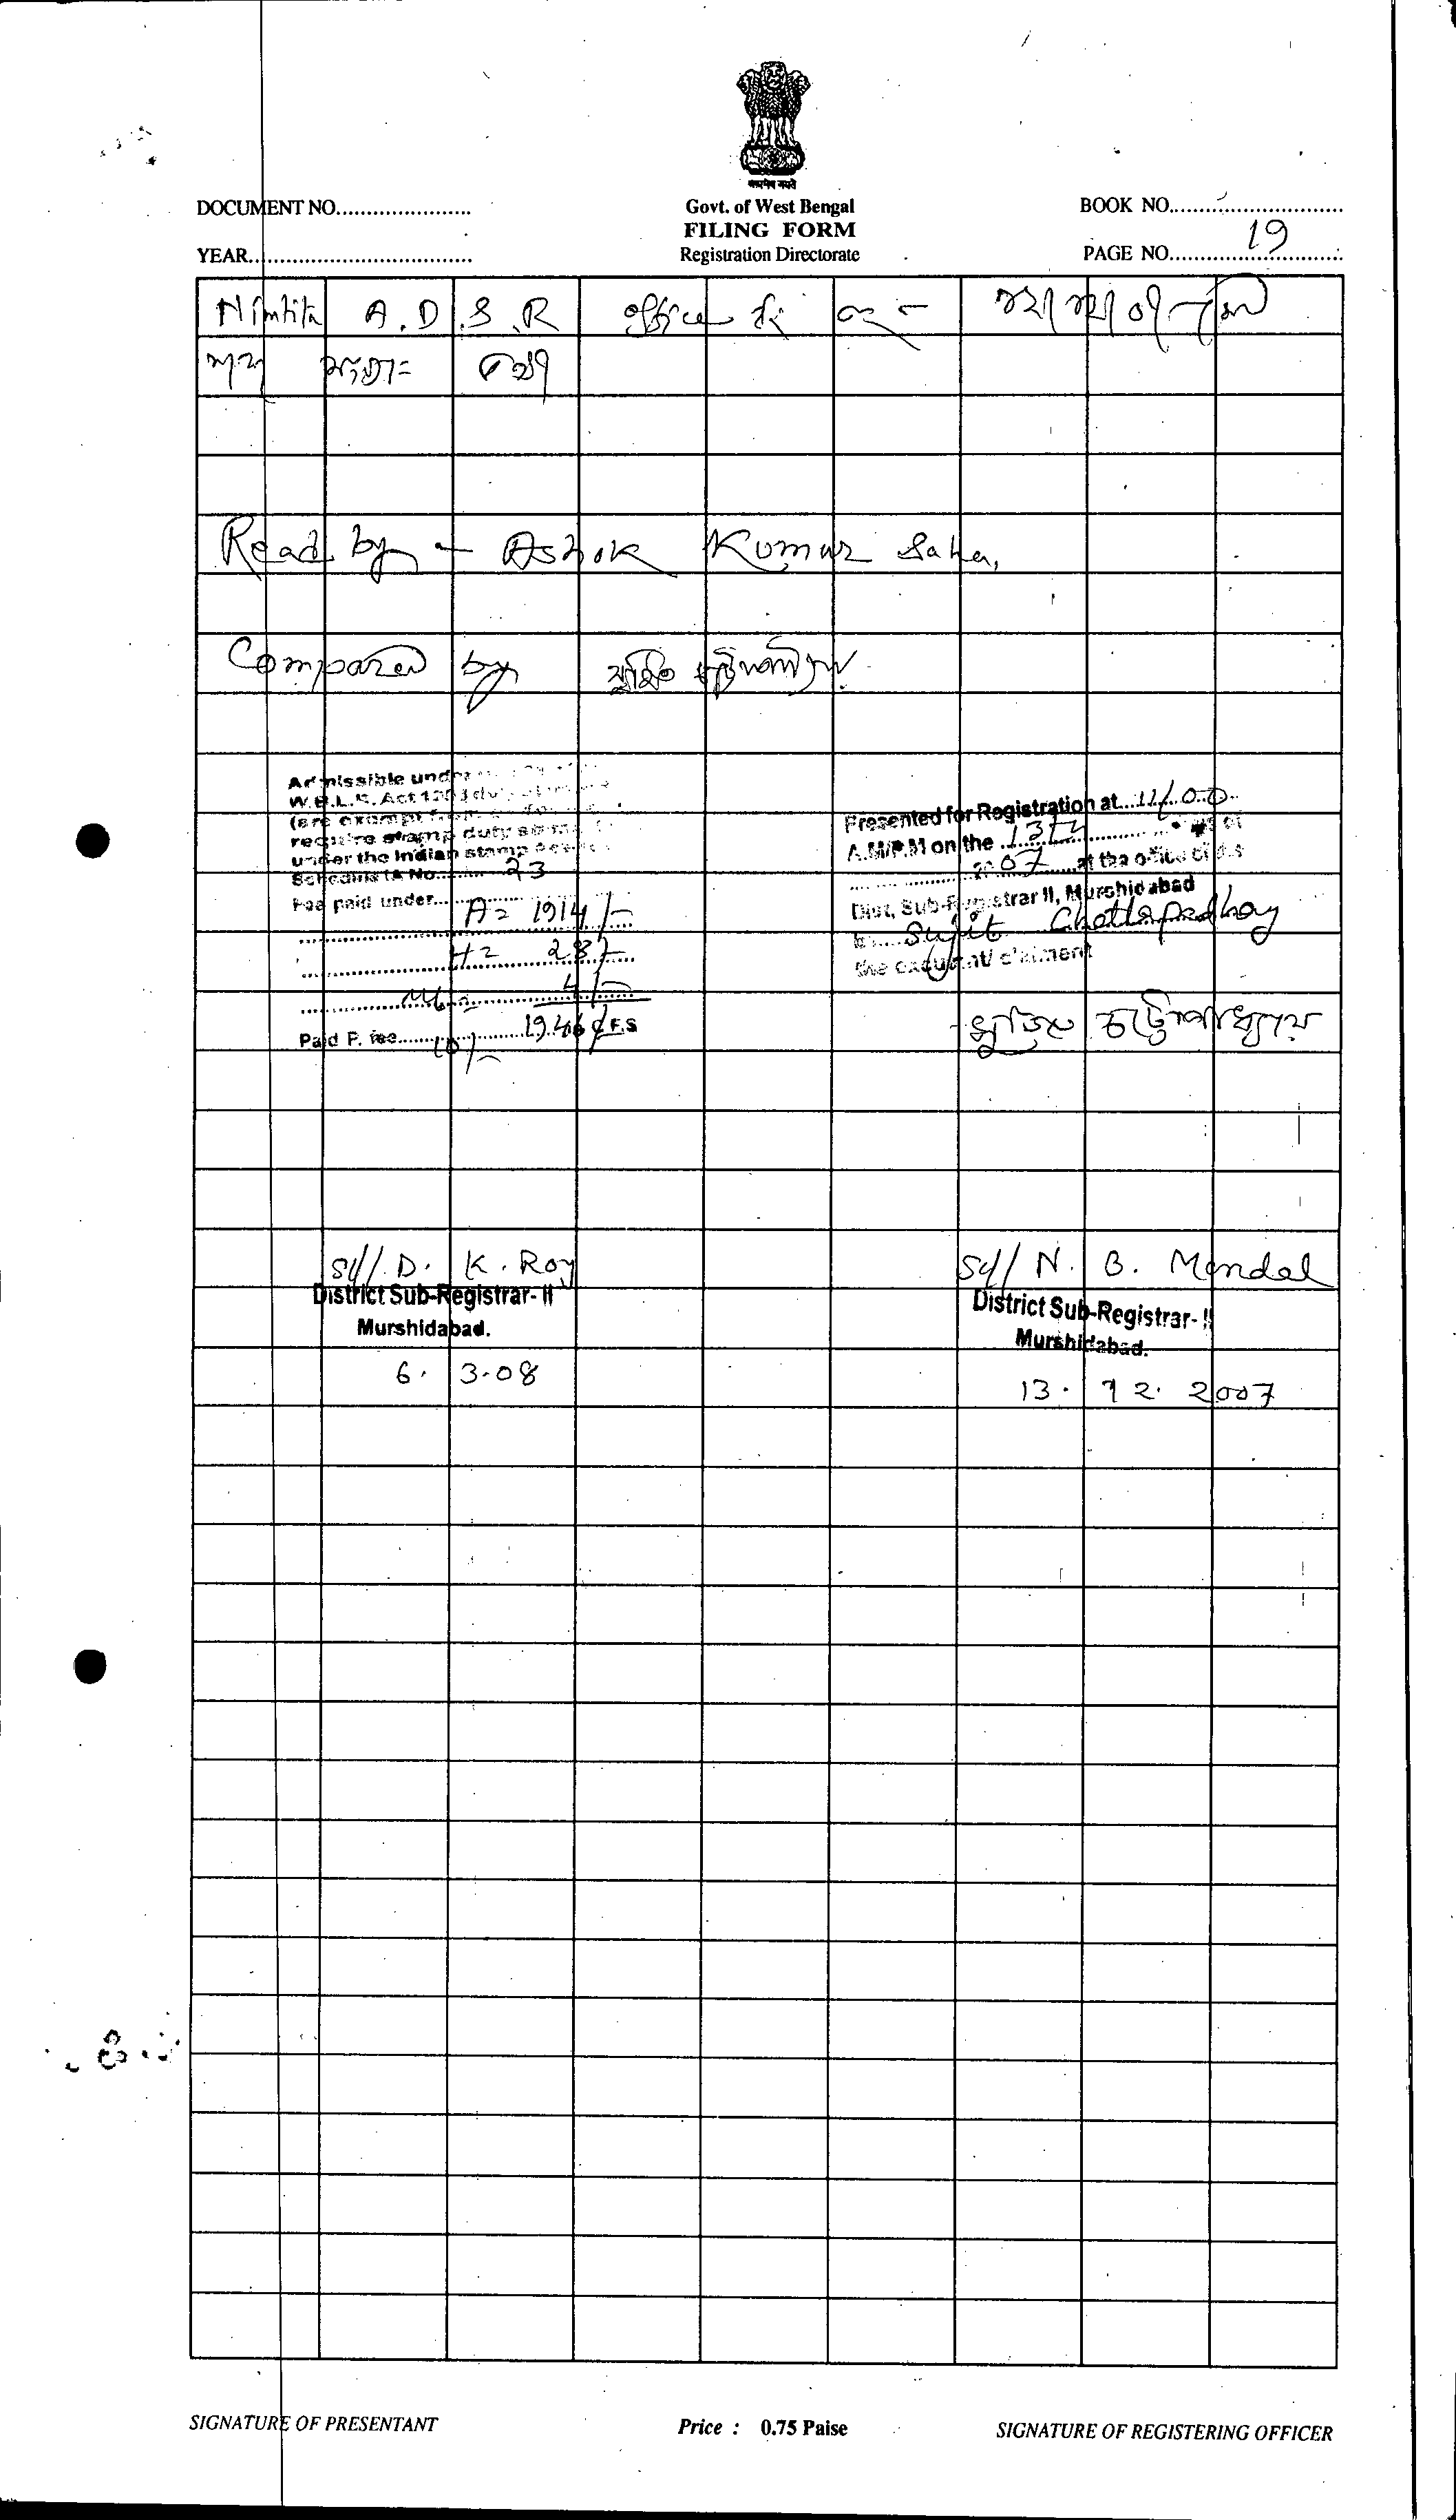 सत्यमेव जयते
DOCUMENT NO......................
Govt. of West Bengal
BOOK NO.............................
FILING FORM
YEAR.....................................
Registration Directorate
PAGE NO............................. 19
Nimtita A.D.S.R office
Read by - Ashok Kumar Saha,
Compared by
Admissible under
W.B.L.R. Act
require stamp duty
under the Indian stamp
Schedule IA No. 23
Fee paid under A = 1914/-
H = 28/-
4/-
1946/- C.F.S
Paid P. fee 10/-
Presented for Registration at 11/00
A.M/P.M on the 13th
2007 at the office of
Dist, Sub-Registrar II, Murshidabad
by Sujit Chattapadhay
the executant/ claiment
সুজিৎ চট্টোপাধ্যায়
Sd// D. K. Roy
District Sub-Registrar- II
Murshidabad.
6. 3.08
Sd// N. B. Mondal
District Sub-Registrar- II
Murshidabad.
13. 12. 2007
SIGNATURE OF PRESENTANT
Price : 0.75 Paise
SIGNATURE OF REGISTERING OFFICER